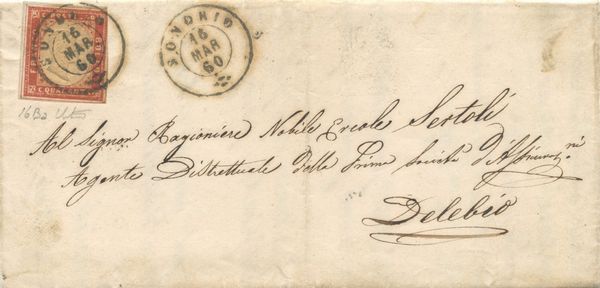 SONDRIO
16
MAR
60
SONDRIO
16
MAR
60
16Ba
Al Signor Ragioniere Nobile Ercole Sertoli
Agente Distrettuale della Prima Società d'Assicuraz.ni
Delebio